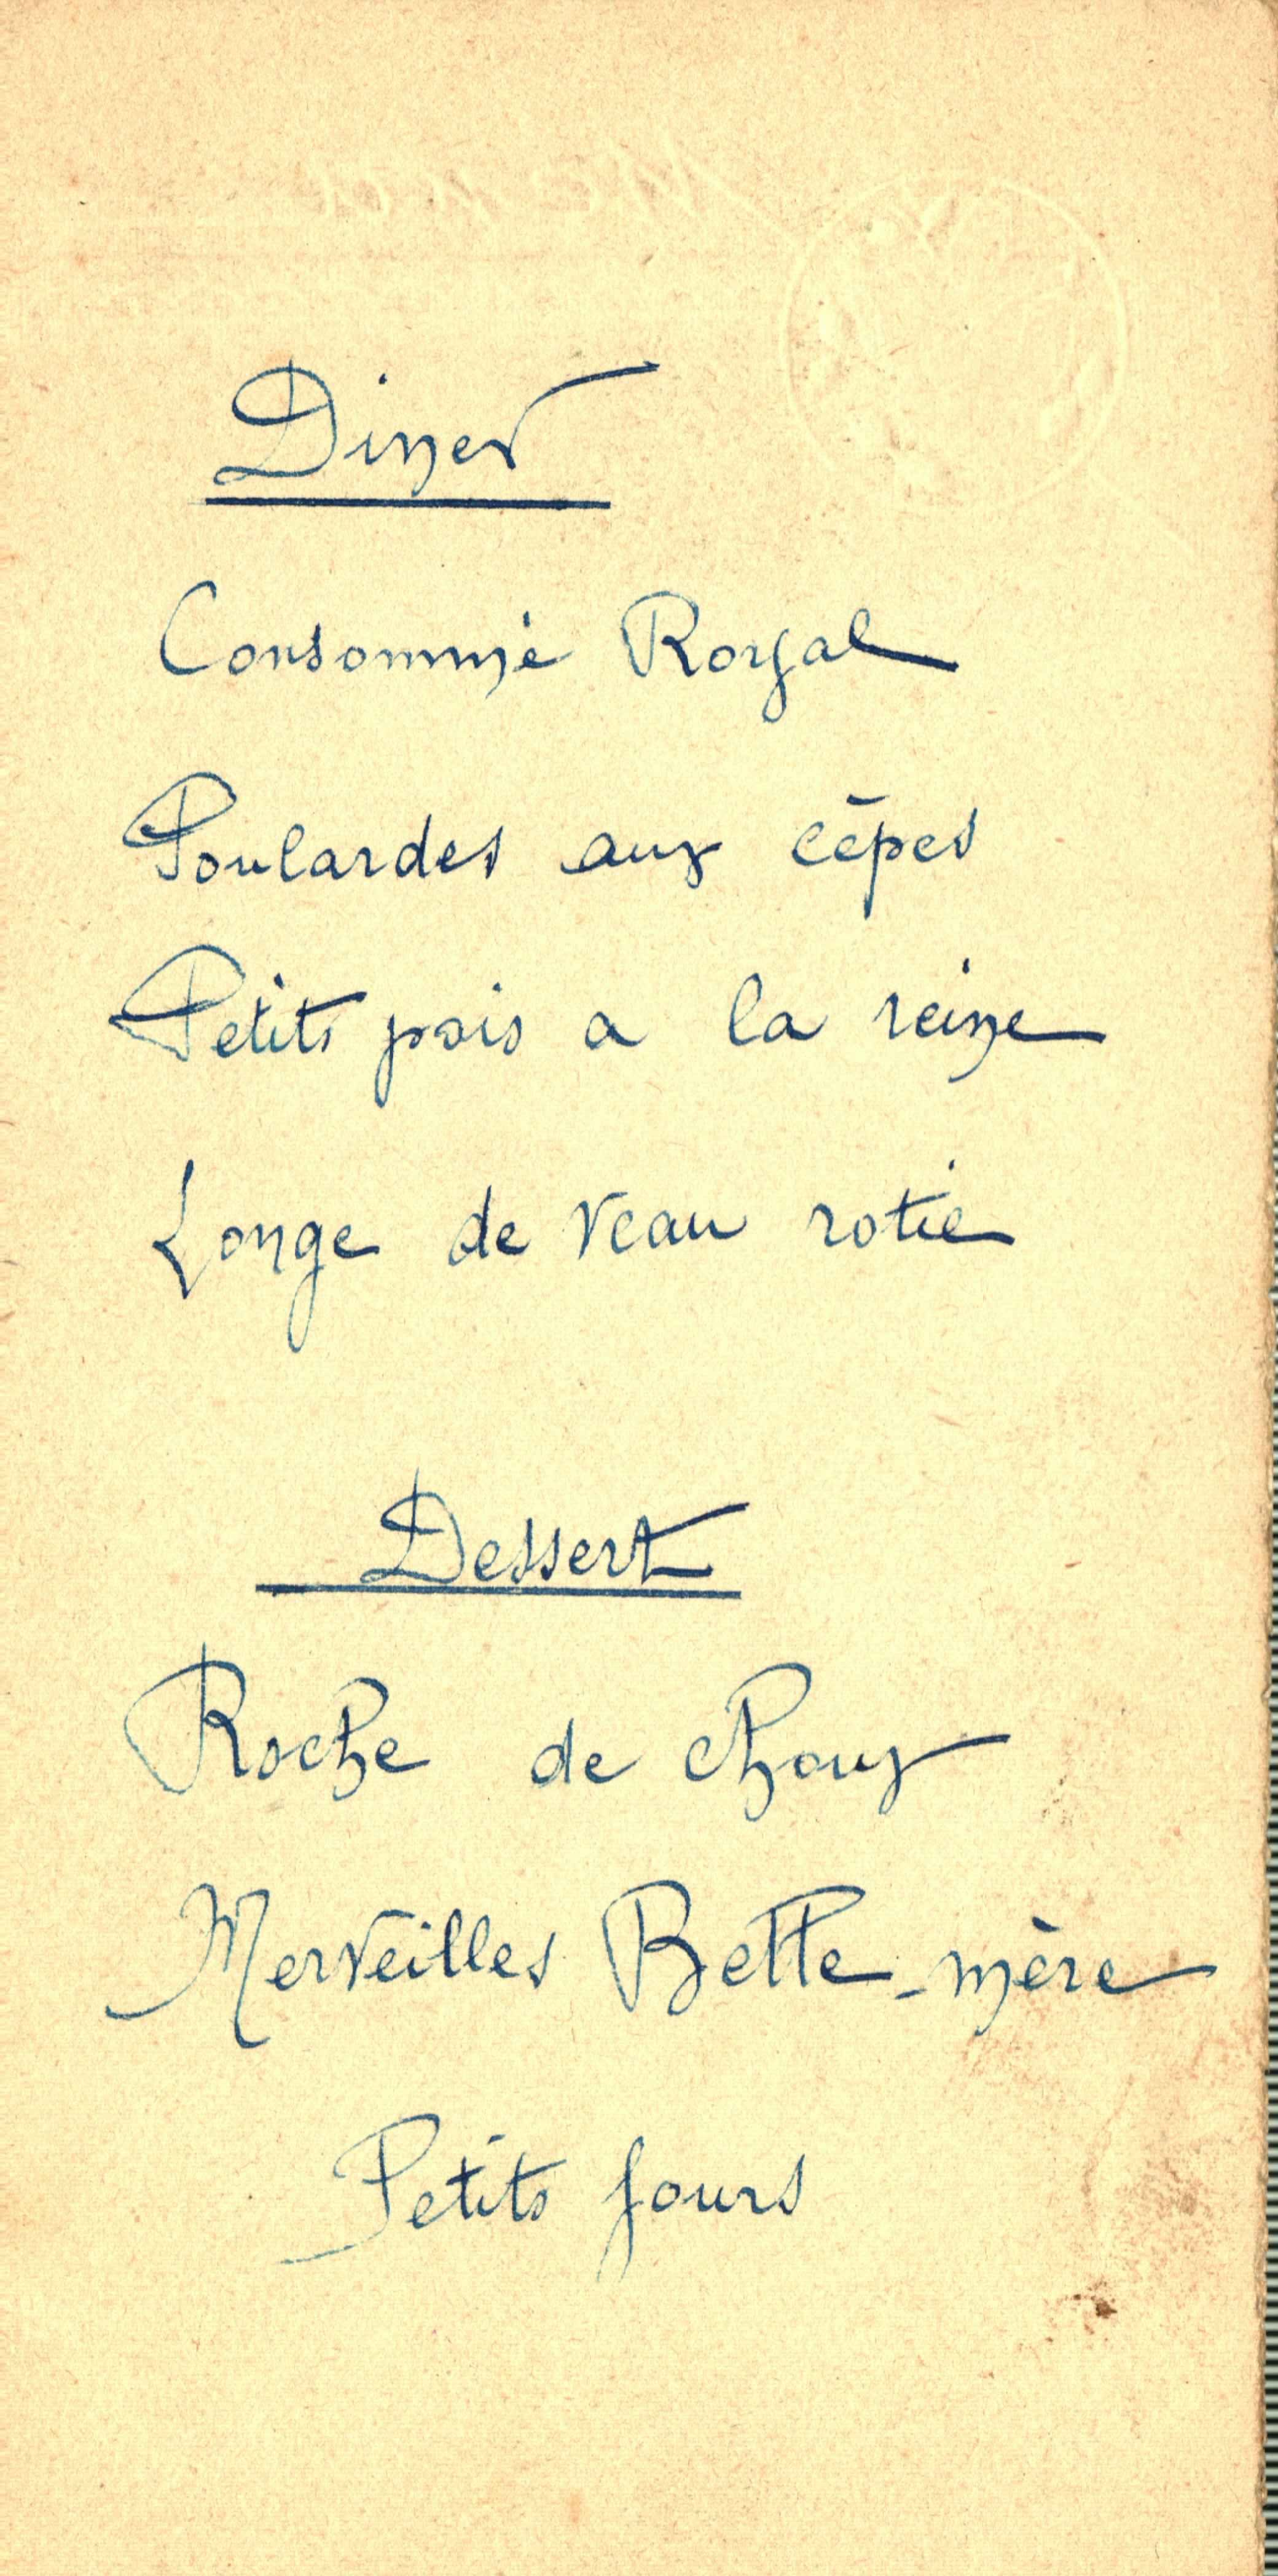 Diner
Consommé Royal
Poulardes aux cêpes
Petits pois a la reine
Longe de Veau rotie
Dessert
Roche de choux
Merveilles Belle-mère
Petits fours